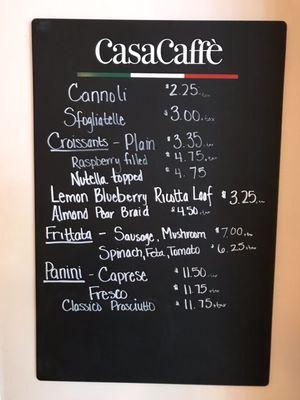 CasaCaffè
Cannoli $2.25 +tax
Sfogliatelle $3.00 +tax
Croissants - Plain $3.35
Raspberry filled $4.75 +tax
Nutella topped $4.75
Lemon Blueberry Ricotta Loaf $3.25
Almond Pear Braid $4.50 +tax
Frittata - Sausage, Mushroom $7.00 +tax
Spinach, Feta, Tomato $6.25 +tax
Panini - Caprese $11.50 +tax
Fresco $11.75 +tax
Classico Prosciutto $11.75 +tax